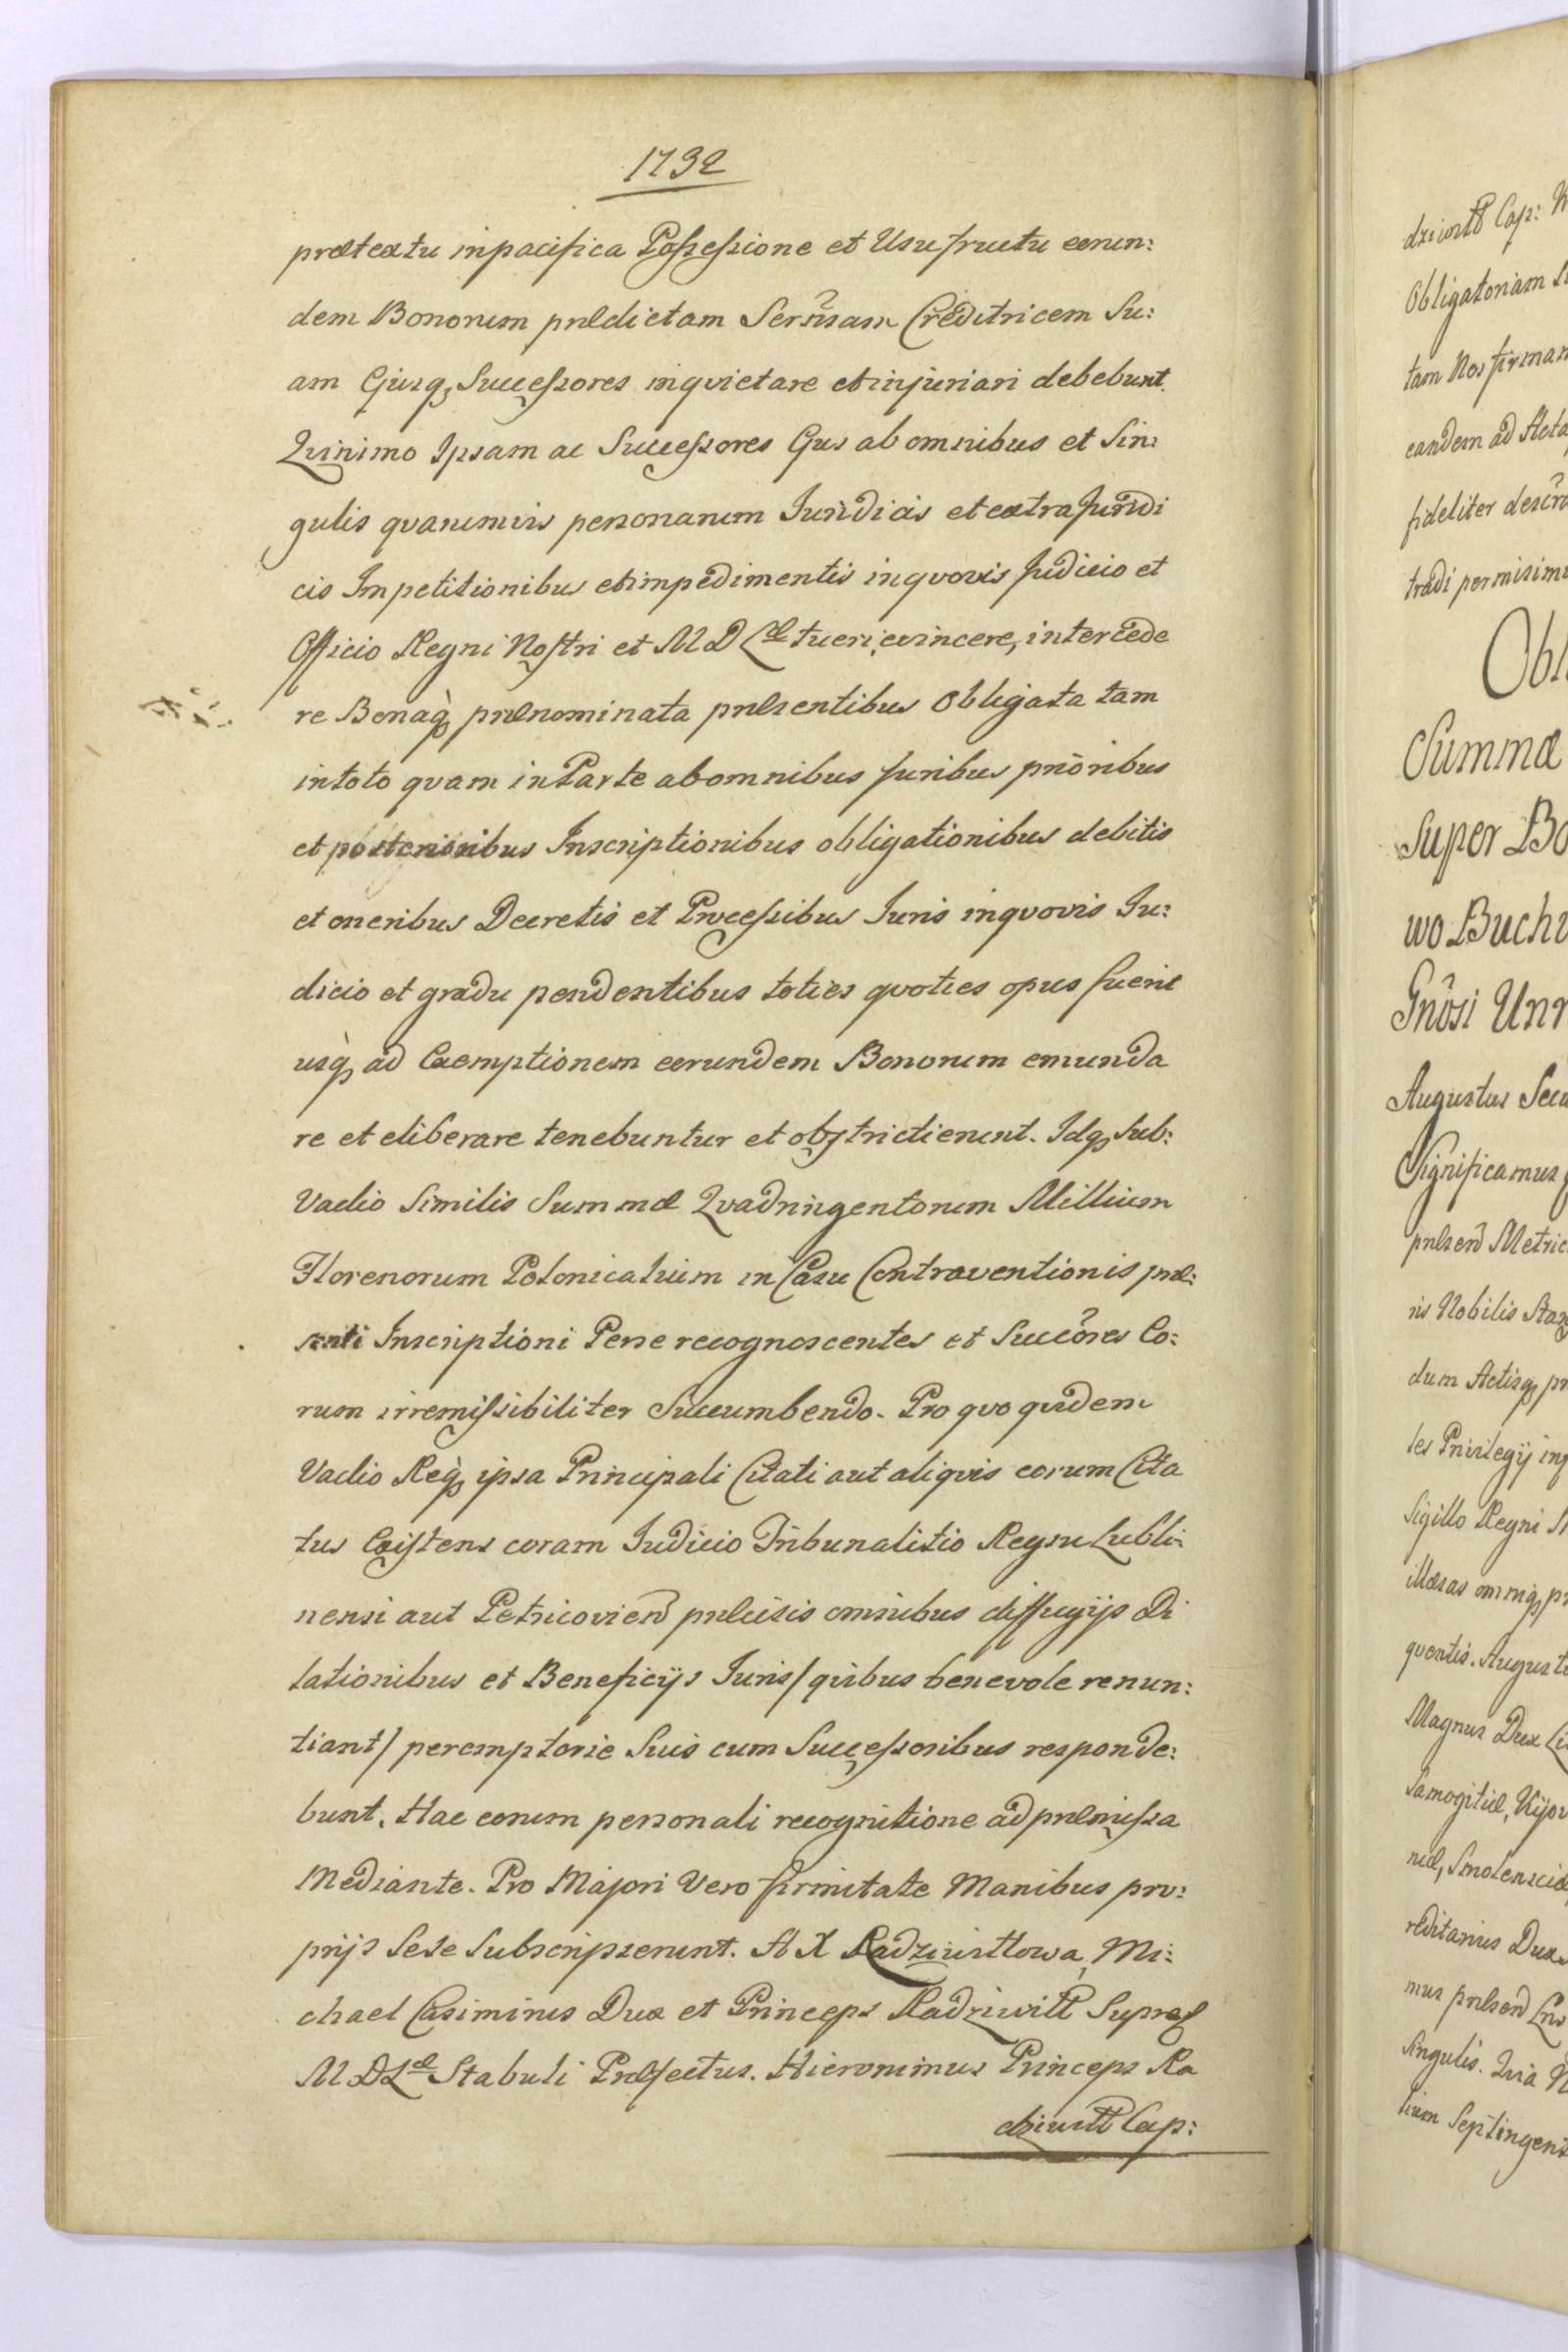 1732
prætextu in pacifica Possessione et Usufructu eorun:
dem Bonorum prædictam Serm̃sam Creditricem Su:
am Ejusq, Successores inqvietare et injuriari debebunt.
Qvinimo Ipsam ac Successores Ejus ab omnibus et Sin:
gulis qvarumvis personarum Juridicis et extra Juridi
cis Impetitionibus et impedimentis inqvovis Judicio et
Officio Regni Nostri et M D Læ tueri, evincere, intercede
re Bonaq, prænominata præsentibus obligata tam
in toto qvam in Parte ab omnibus Juribus prioribus
et posterioribus Inscriptionibus obligationibus debitis
et oneribus Decretis et Processibus Juris inqvovis Ju:
dicio et gradu pendentibus toties qvoties opus fuerit
usq, ad Exemptionem eorundem Bonorum emunda
re et eliberare tenebuntur et obstricti erunt. Idq, sub:
Vadio Similis Summæ Qvadringentorum Millium
Florenorum Polonicalium in Casu Contraventionis præ:
senti Inscriptioni Per se recognoscentes et Succôres Eo:
rum irremissibiliter Succumbendo. Pro qvo qvidem
Vadio Req, ipsa Principali Citati aut aliqvis eorum Cita
tus Existens coram Judicio Tribunalitio Regni Lubli:
nensi aut Petricovien præcisis omnibus diffugijs Di
lationibus et Beneficijs Juris/qvibus benevole renun:
tiant/ peremptorie Suis cum Successoribus responde:
bunt. Hac eorum personali recognitione ad præmissa
Mediante. Pro Majori Vero firmitate Manibus pro:
prijs Sese Subscripserunt. A X Radziwiłłowa, Mi:
chael Casimirus Dux et Princeps Radziwiłł Supræ
M D Læ Stabuli Præfectus. Hieronimus Princeps Ra
dziwiłł Cap:
dziwiłł Cap:
Obligatoriam
tam Nos firman
eandem ad Acta
fideliter descr
tradi permisimu
Obl
Summæ
Super Bo
wo Buch
Gnôsi Unr
Augustus Secu
Significamus
præsen Metric
ris Nobilis Stan
dum Actisq, pr
les Privilegij inf
Sigillo Regni
illæsas omniq, p
qventis. Augustu
Magnus Dux Li
Samogitiæ, Kijov
niæ, Smolenscia
reditarius Dux
mus præsen
Singulis. Qvia
lium Septingent